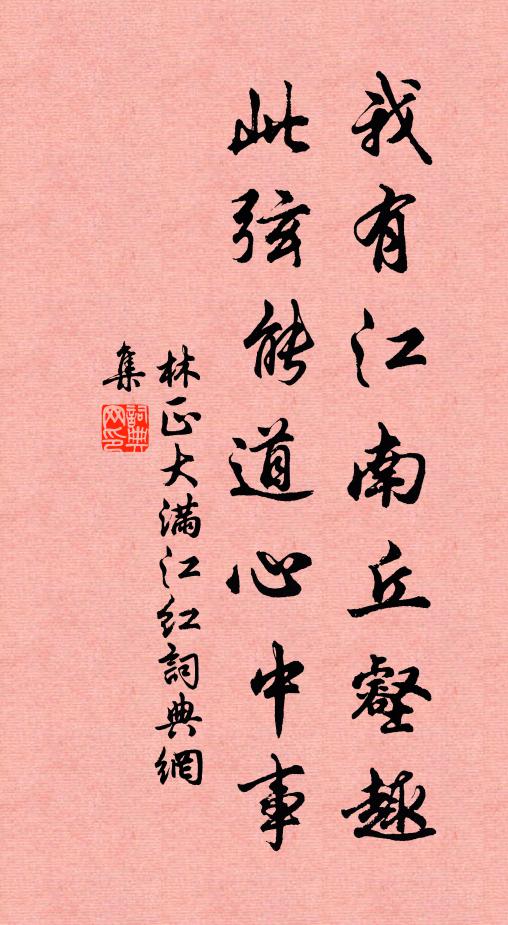 我有江南丘壑趣
此弦能道心中事
林正大满江红詞典網
集
詞典网印